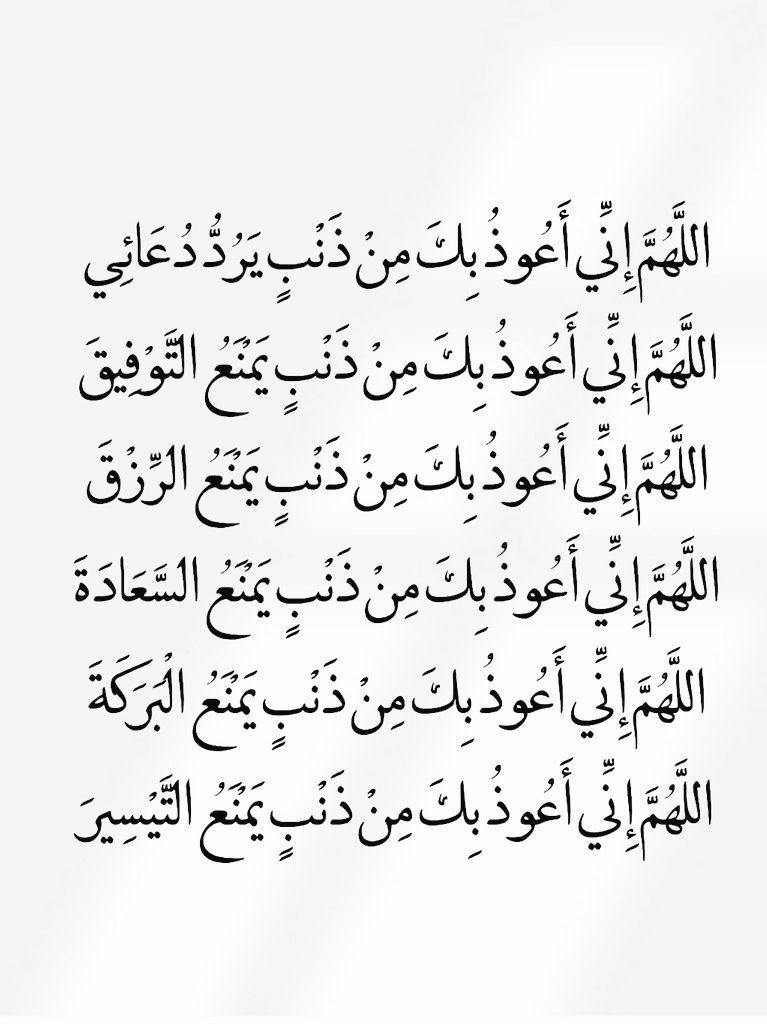 اللَّهُمَّ إِنِّي أَعُوذُ بِكَ مِنْ ذَنْبٍ يَرُدُّ دُعَائِي
اللَّهُمَّ إِنِّي أَعُوذُ بِكَ مِنْ ذَنْبٍ يَمْنَعُ التَّوْفِيقَ
اللَّهُمَّ إِنِّي أَعُوذُ بِكَ مِنْ ذَنْبٍ يَمْنَعُ الرِّزْقَ
اللَّهُمَّ إِنِّي أَعُوذُ بِكَ مِنْ ذَنْبٍ يَمْنَعُ السَّعَادَةَ
اللَّهُمَّ إِنِّي أَعُوذُ بِكَ مِنْ ذَنْبٍ يَمْنَعُ الْبَرَكَةَ
اللَّهُمَّ إِنِّي أَعُوذُ بِكَ مِنْ ذَنْبٍ يَمْنَعُ التَّيْسِيرَ